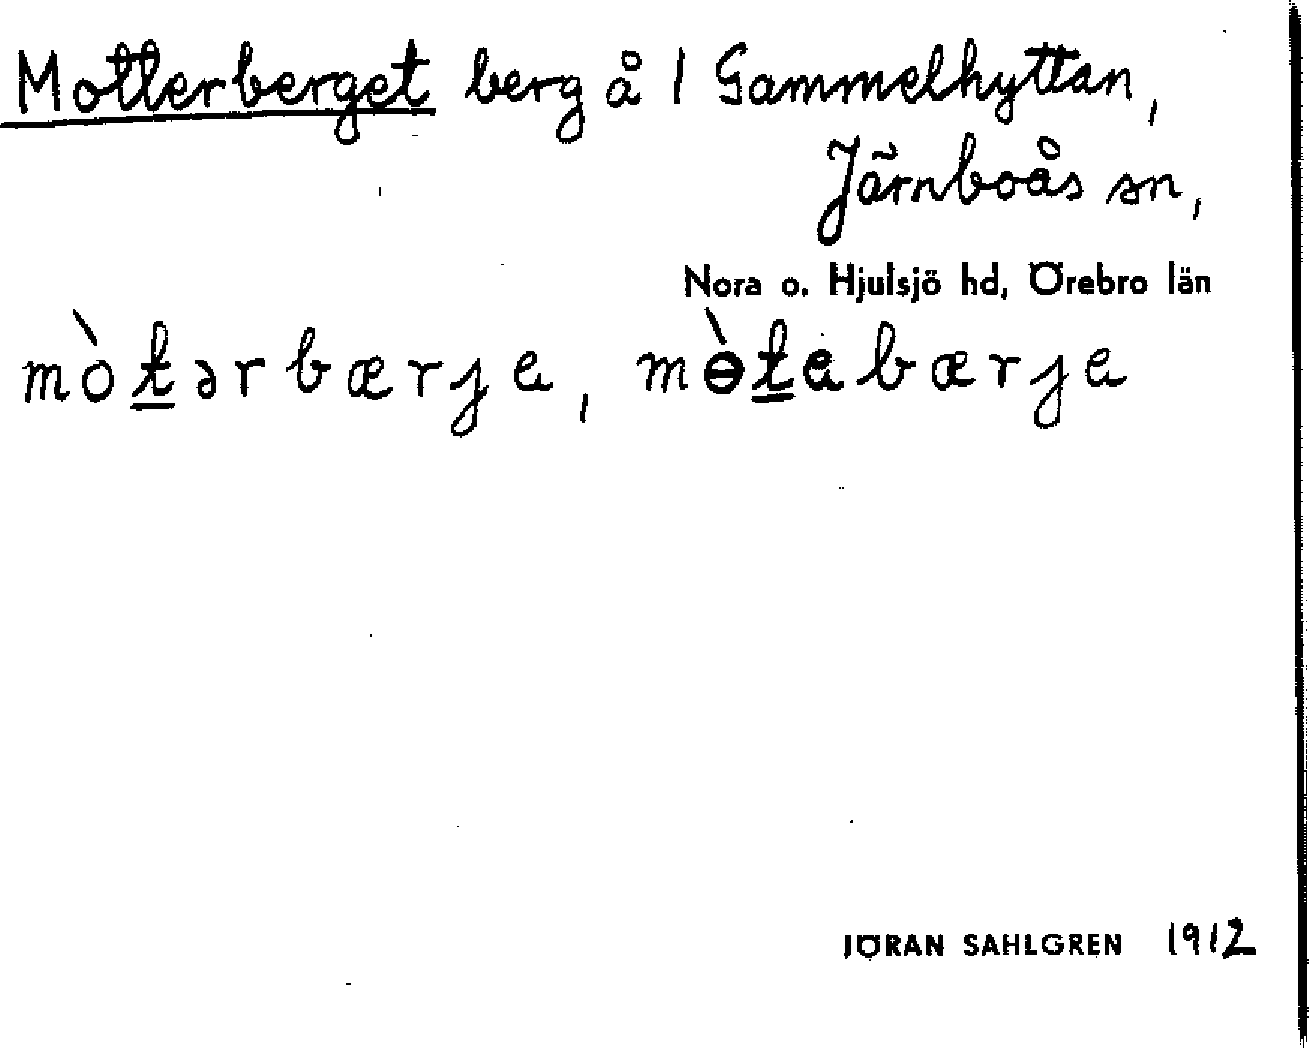 Motterberget berg å 1 Gammelhyttan,
Järnboås sn,
Nora o. Hjulsjö hd, Örebro län
mòt̲ərbærje, mɵ̀t̲abærje
JÖRAN SAHLGREN 1912